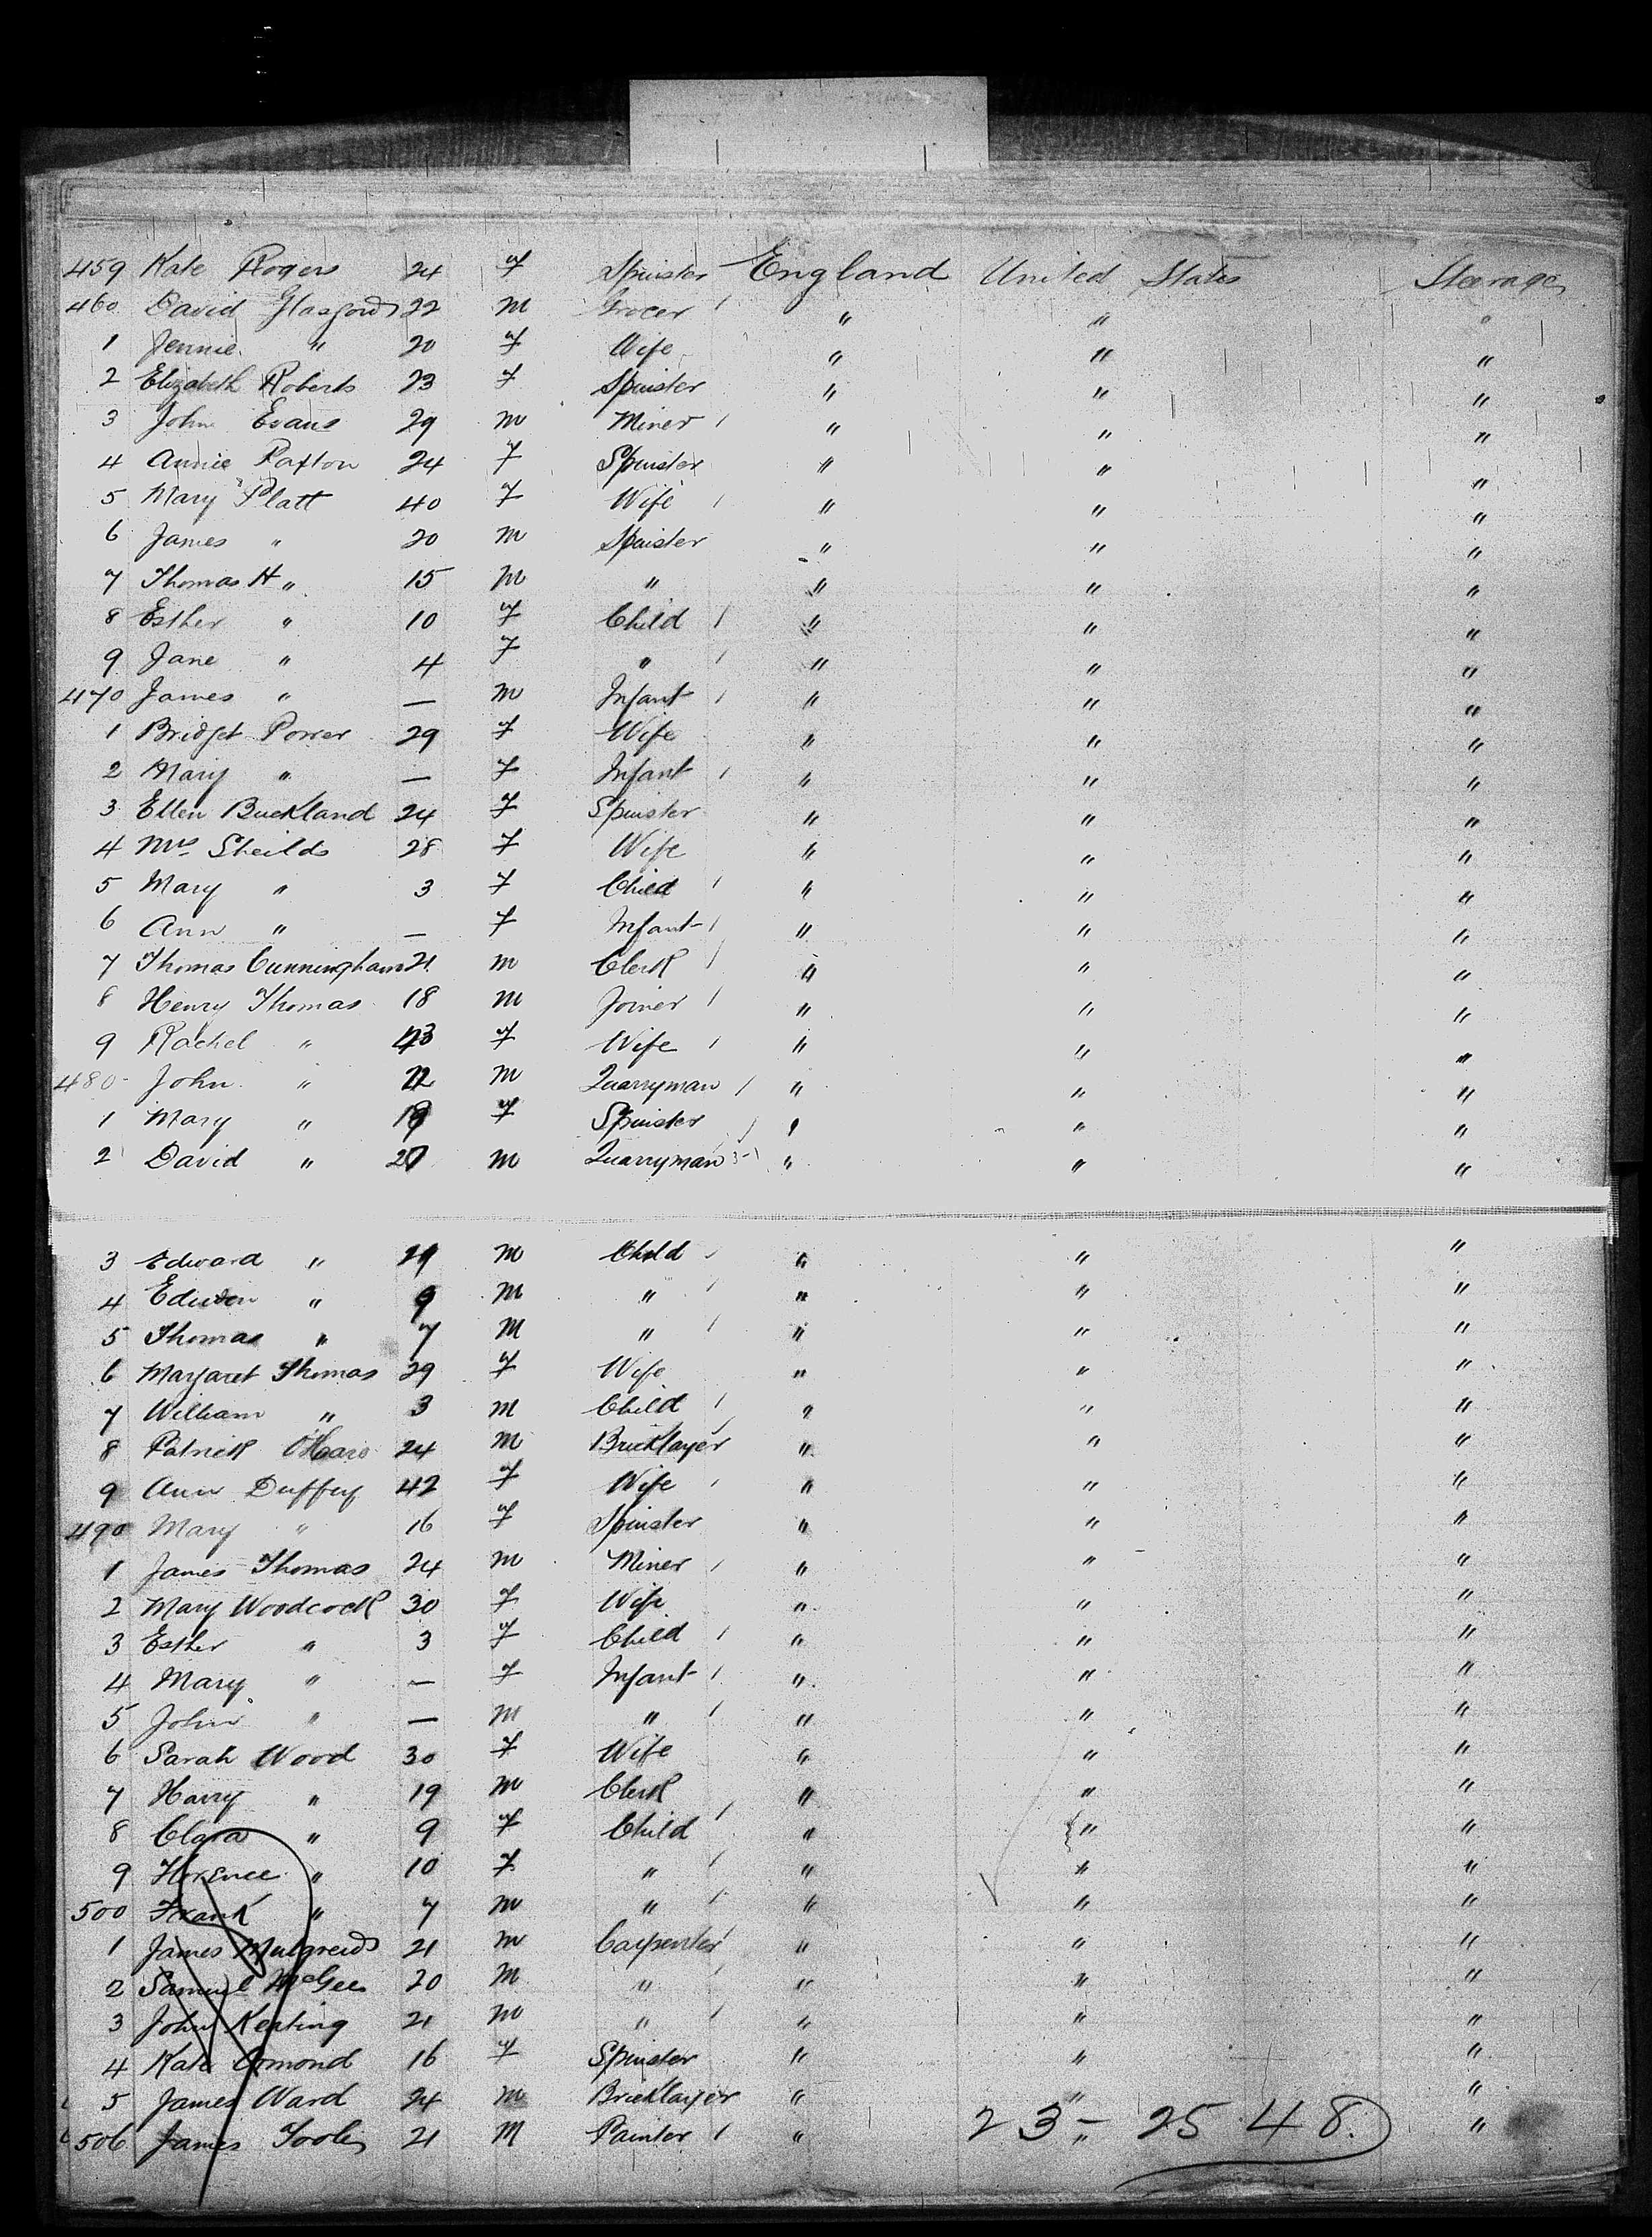 459 Kate Rogers 24 f Spinster England United States Steerage
460 David Glasford 22 m Grocer " " "
1 Jennie " 20 f Wife " " "
2 Elizabeth Roberts 23 f Spinster " " "
3 John Evans 29 m Miner " " "
4 Annie Paxton 24 f Spinster " " "
5 Mary Platt 40 f Wife " " "
6 James " 20 m Spinster " " "
7 Thomas H " 15 m " " " "
8 Esther " 10 f Child " " "
9 Jane " 4 f " " " "
470 James " — m Infant " " "
1 Bridget Power 29 f Wife " " "
2 Mary " — f Infant " " "
3 Ellen Buckland 24 f Spinster " " "
4 Mrs Sheilds 28 f Wife " " "
5 Mary " 3 f Child " " "
6 Ann " — f Infant " " "
7 Thomas Cunningham 21 m Clerk " " "
8 Henry Thomas 18 m Joiner " " "
9 Rachel " 43 f Wife " " "
480 John " m Quarryman " " "
1 Mary " f Spinster " " "
2 David " m Quarryman " " "
3 Edward " m Child " " "
4 Edwin " 9 m " " " "
5 Thomas " 7 m " " " "
6 Margaret Thomas 29 f Wife " " "
7 William " 3 m Child " " "
8 Patrick O'Hare 24 m Bricklayer " " "
9 Ann Duffey 42 f Wife " " "
490 Mary " 16 f Spinster " " "
1 James Thomas 24 m Miner " " "
2 Mary Woodcock 30 f Wife " " "
3 Esther " 3 f Child " " "
4 Mary " — f Infant " " "
5 John " — m " " " "
6 Sarah Wood 30 f Wife " " "
7 Harry " 19 m Clerk " " "
8 Clara " 9 f Child " " "
9 Florence " 10 f " " " "
500 Frank " 7 m " " " "
1 James 21 m Carpenter " " "
2 Samuel McGee 20 m " " " "
3 John Keating 21 m " " " "
4 Kate Osmond 16 f Spinster " " "
5 James Ward 24 m Bricklayer " " "
506 James Tooley 21 m Painter " " "
23 - 25 48